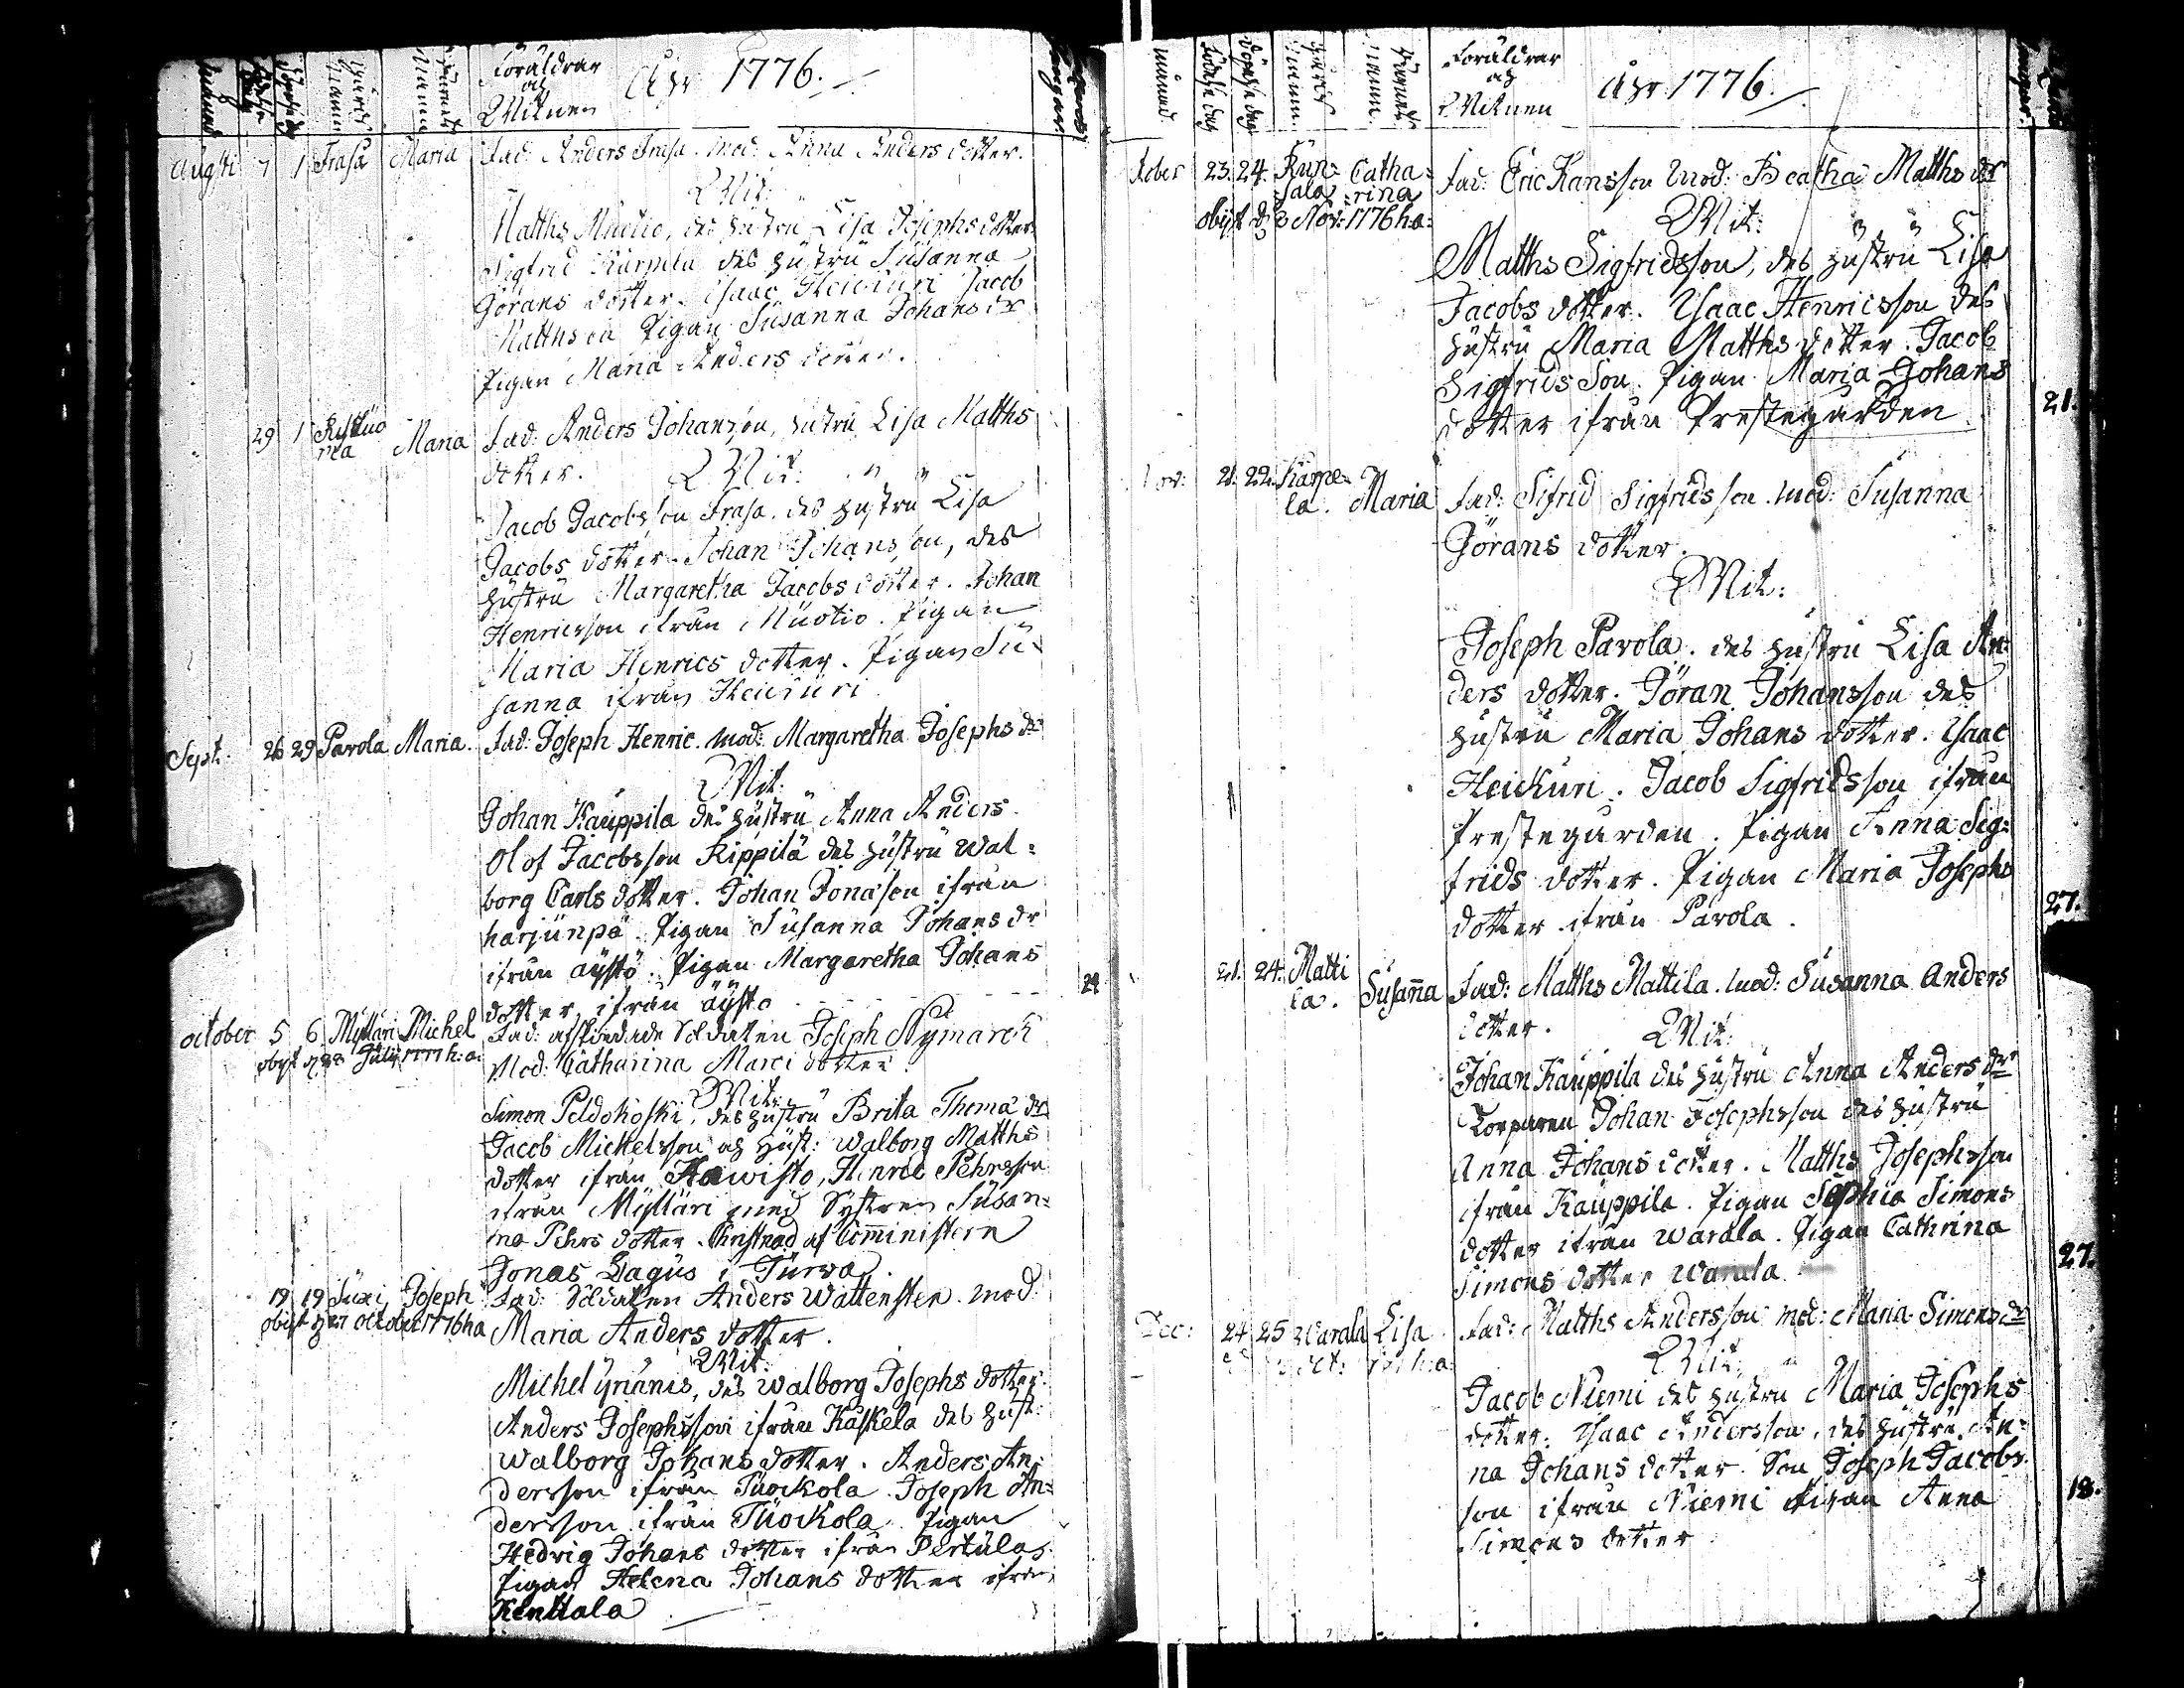 Föräldrar
och
Witnen
Åhr 1776.
Augsti 7 1 Frasa Maria Fad: Anders Frasa. mod: Anna Anders dotter.
Wit:
Matths Muotio, des hustru Lisa Josephs dotter
Sigfrid Karpela des hustru Susanna
Görans dotter. Isaac Heickuri Jacob
Matthson Pigan Susanna Johans dr
Pigan Maria Anders dotter.
29 1 Maria Fad: Anders Johanson, hustru Lisa Matths
dotter. Wit:
Jacob Jacobsson Frasa. des hustru Lisa
Jacobs dotter. Johan Johansson, des
hustru Margaretha Jacobs dotter. Johan
Henricsson ifrån Muotio. Pigan
Maria Henrics dotter. Pigan Su-
sanna ifrån Heickuri.
Sept. 26 29 Pavola Maria. Fad: Joseph Henric. mod: Margaretha Josephs dr
Wit:
Johan Kauppila des hustru Anna Anders.
Olof Jacobsson Rippilä des hustru Wal=
borg Carls dotter. Johan Jonason ifrån
harjunpä. Pigan Susanna Johans dr
ifrån äÿstö. Pigan Margaretha Johans
dotter ifrån äÿstö
24
october 5 6 Myllari Michel Fad: afskedade Soldaten Joseph Nymarck
obijt d 28 Julij 1777 h:a: Mod: Catharina Marci dotter
Wit:
Simon Peldokoski, des hustru Brita Thoma dr
Jacob Michelsson och hust: Walborg Matths
dotter ifrån Hawisto, Henric Pehrsson
ifrån Myllari med Systren Susan=
na Pehrs dotter. Christnad af Comministern
Jonas Dagus i Turva.
19 19 Suxi Joseph Fad: Soldaten Anders Wattensten. mod:
obijt d 27 october 1776 ha Maria Anders dotter.
Wit:
Michel Yrjänis, des Walborg Josephs dotter.
Anders Josephsson ifrån Kaskela des hust:
Walborg Johans dotter. Anders An-
dersson ifrån Tuockola. Joseph An=
dersson ifrån Tuockola. Pigan
Hedvig Johans dotter ifrån Pertula.
Pigan Helena Johans dotter ifrån
Kenttala
månad
Födelse dag
Föräldrar
och
Witnen
Åhr 1776.
tober 23. 24. Catha=
rina Fad: Eric Hansson mod: Beatha Matths dr
obijt d 3 Nov: 1776 h:a:
Wit:
Matths Sigfridsson, des hustru Lisa
Jacobs dotter. Isaac Henricsson des
hustru Maria Matths dotter. Jacob
Sigfrids Son. Pigan Maria Johans
dotter ifrån Prestegården.
21.
Nov: 21. 22. Karpe=
la. Maria Fad: Sifrid Sigfridsson. mod: Susanna
Görans dotter.
Wit:
Joseph Pavola. des hustru Lisa An=
ders dotter. Göran Johansson des
hustru Maria Johans dotter. Isaac
Heickuri. Jacob Sigfridsson ifrån
Prestegården. Pigan Anna Sig=
frids dotter. Pigan Maria Josephs
dotter ifrån Pavola.
27.
21. 24. Matti
la. Susaña Fad: Matths Mattila. mod: Susanna Anders
dotter. Wit:
Johan Kauppila des hustru Anna Anders dr
Torparen Johan Josephsson des hustru
Anna Johans dotter. Matths Josephsson
ifrån Kauppila. Pigan Sophia Simons
dotter ifrån Warala. Pigan Cathrina
Simons dotter Warala.
27.
Dec: 24 25 Warala Lisa. Fad: Matths Andersson mod: Maria Simons dr
Wit:
Jacob Niemi des hustru Maria Josephs
dotter. Isaac Andersson, des hustru An=
na Johans dotter. Son Joseph Jacobs
son ifrån Niemi Pigan Anna
Simons dotter
18.